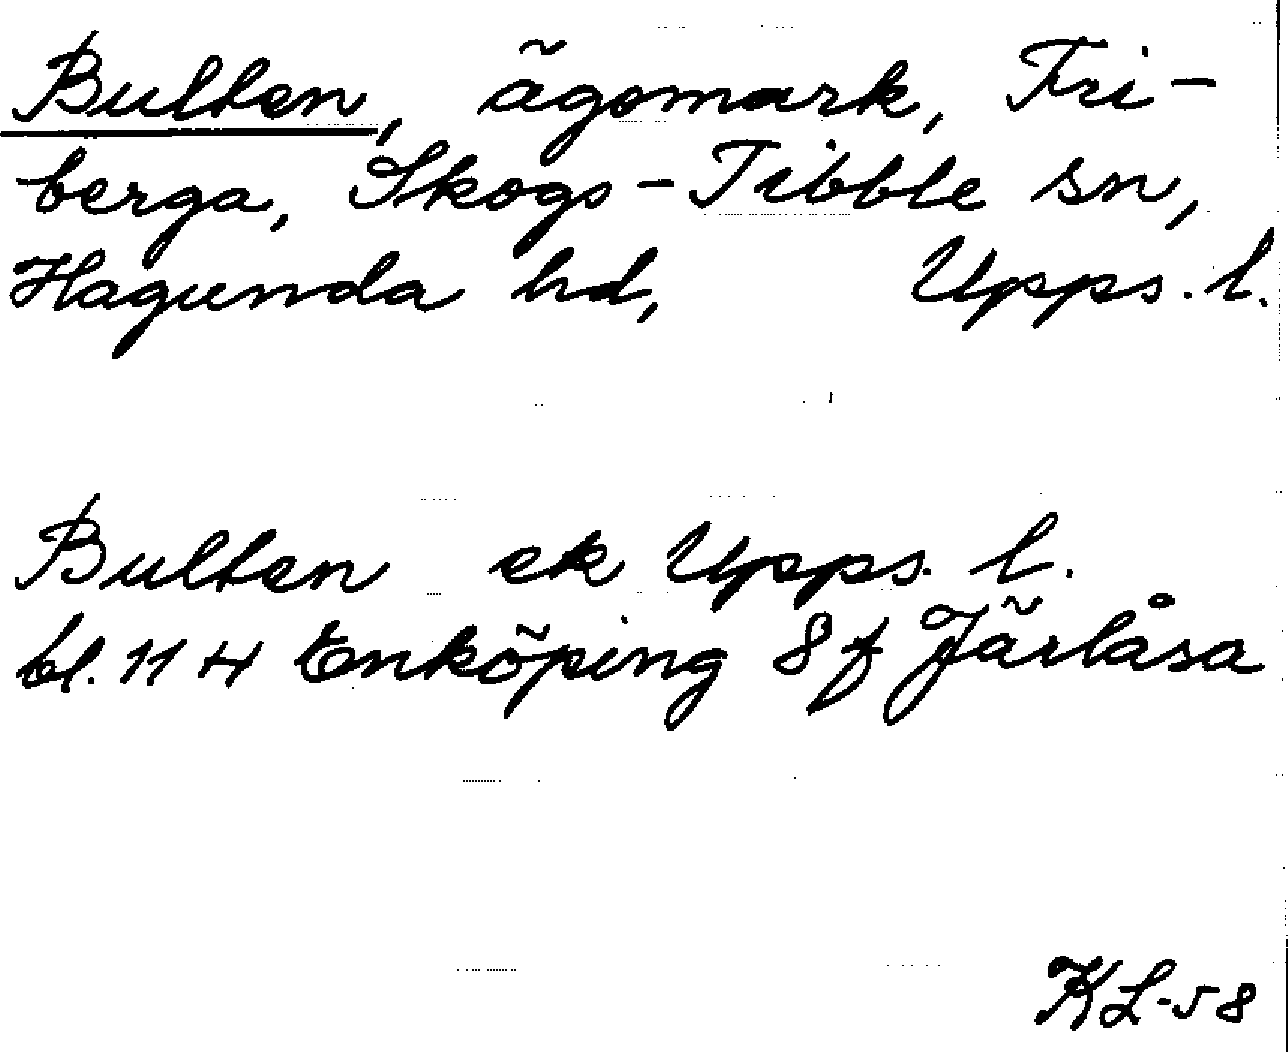 Bulten, ägomark, Fri-
berga, Skogs-Tibble sn,
Hagunda hd, Upps. l.
Bulten ek Upps. l.
bl. 11 H Enköping 8 f Järlåsa
KL-58